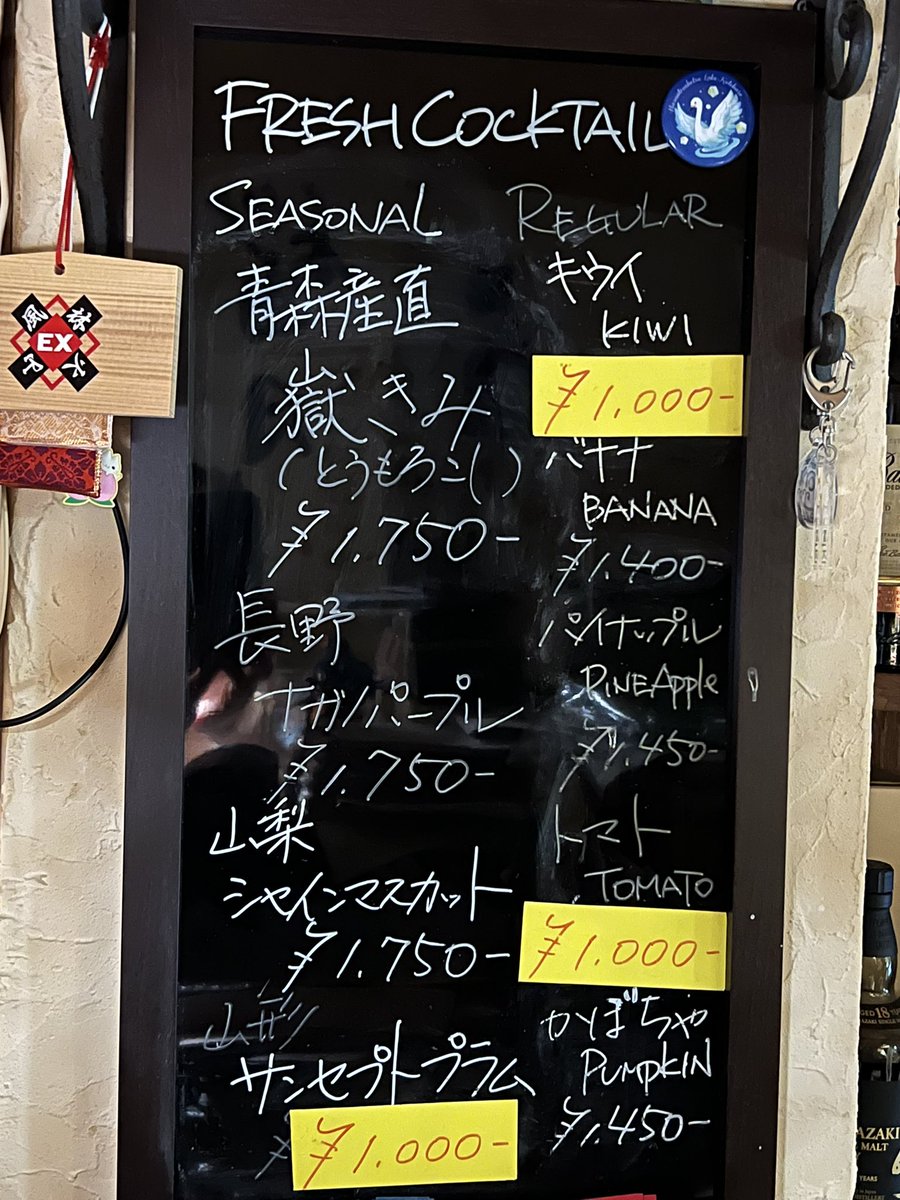 FRESH COCKTAIL
SEASONAL
青森産直
嶽きみ
(とうもろこし)
¥1,750-
長野
ナガノパープル
¥1,750-
山梨
シャインマスカット
¥1,750-
山形
サンセプトプラム
¥1,000-
REGULAR
キウイ
KIWI
¥1,000-
バナナ
BANANA
¥1,400-
パイナップル
PINEApple
¥1,450-
トマト
TOMATO
¥1,000-
かぼちゃ
PUMPKIN
¥1,450-
風林火山
EX
AGED 18
AZAKI
MALT
YEARS